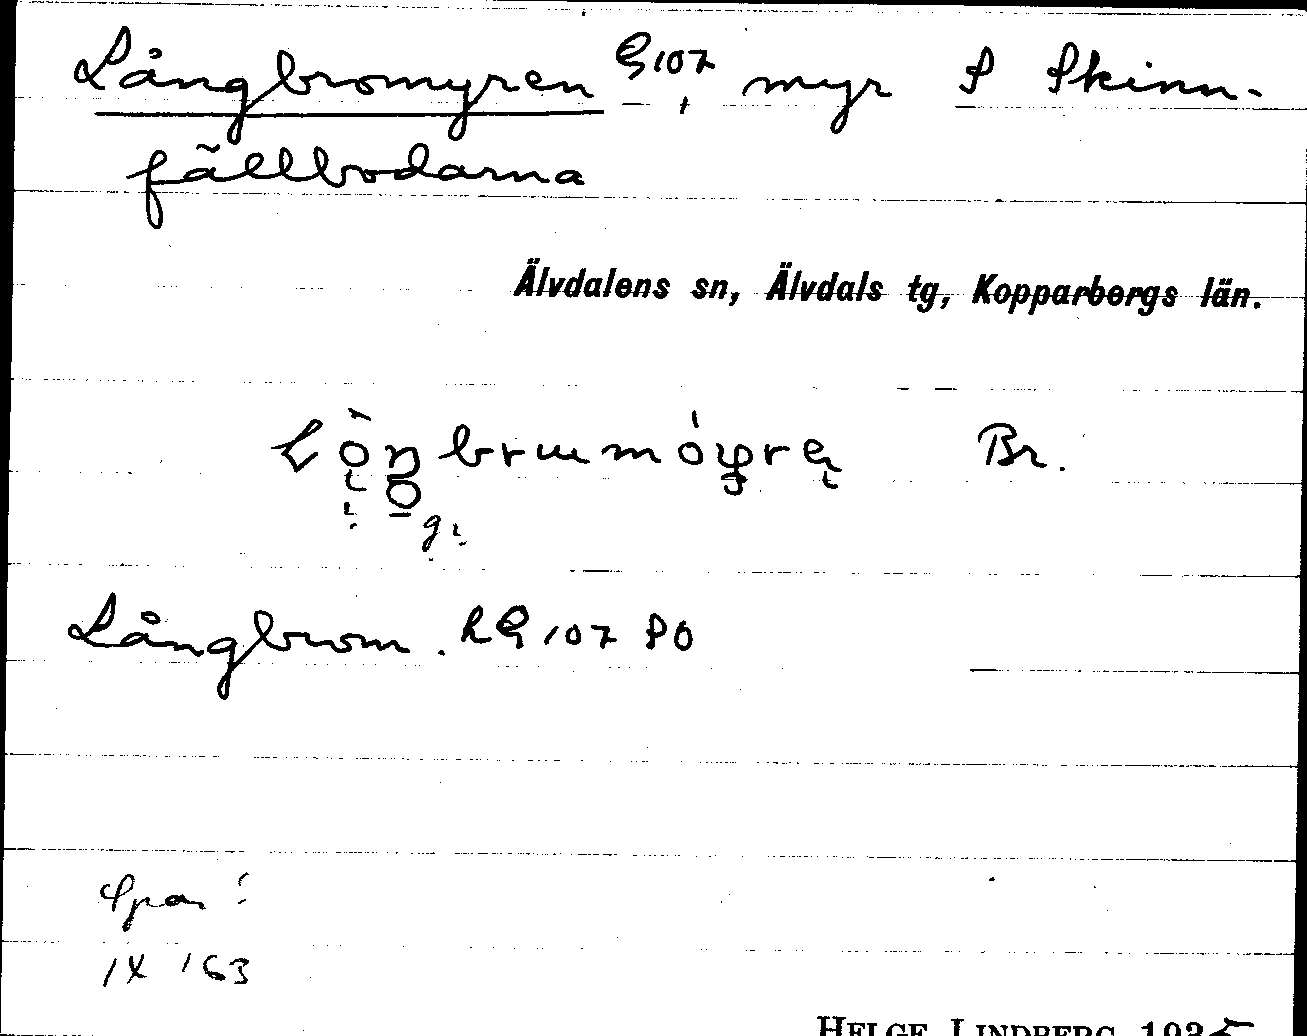 Långbromyren G107 myr S Skinn-
fällbodarna
Älvdalens sn, Älvdals tg, Kopparbergs län.
Br.
Långbrom. RG 107 SO
IX 163
HELGE LINDBERG 1935